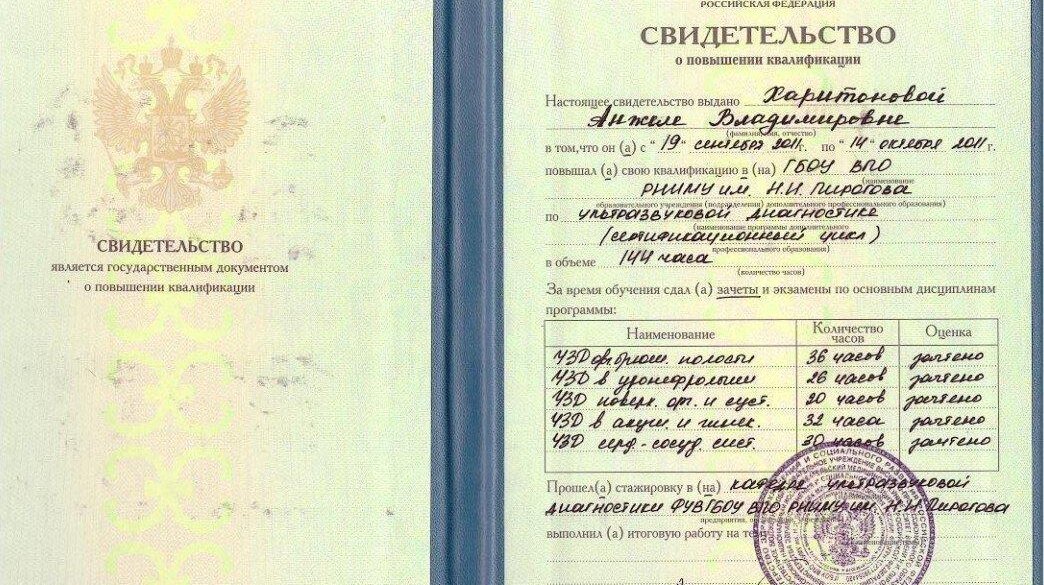 СВИДЕТЕЛЬСТВО
является государственным документом
о повышении квалификации
РОССИЙСКАЯ ФЕДЕРАЦИЯ
СВИДЕТЕЛЬСТВО
о повышении квалификации
Настоящее свидетельство выдано Харитоновой
Анжеле Владимировне
(фамилия, имя, отчество)
в том, что он (а) с "19" сентября 2011г. по "14" октября 2011 г.
повышал (а) свою квалификацию в (на) ГБОУ ВПО
(наименование
РНИМУ им. Н.И. Пирогова
образовательного учреждения (подразделения) дополнительного профессионального образования)
по ультразвуковой диагностике
(наименование программы дополнительного
(сертификационный цикл)
профессионального образования)
в объеме 144 часа
(количество часов)
За время обучения сдал (а) зачеты и экзамены по основным дисциплинам
программы:
Наименование Количество часов Оценка
УЗД брюшн. полости 36 часов зачтено
УЗД в уронефрологии 26 часов зачтено
УЗД поверх. орг. и суст. 20 часов зачтено
УЗД в акуш. и гинек. 32 часа зачтено
УЗД серд.-сосуд. сист. 30 часов зачтено
Прошел(а) стажировку в (на) кафедре ультразвуковой
диагностики ФУВ ГБОУ ВПО РНИМУ им. Н.И Пирогова
предприятия,
выполнил (а) итоговую работу на тему